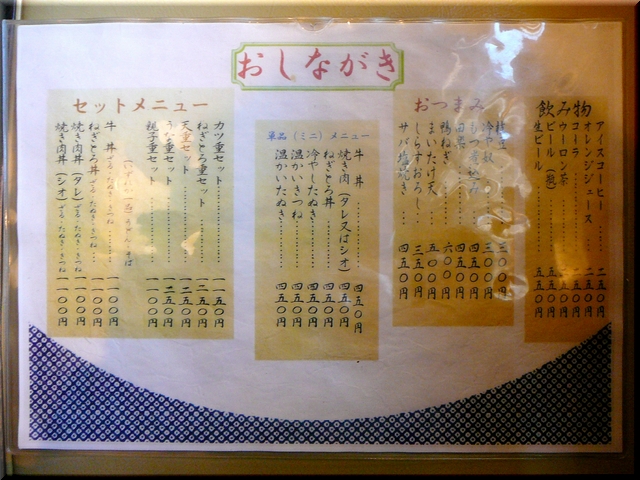 おしながき
飲み物
アイスコーヒー 二五〇円
オレンジジュース 二五〇円
コーラ 二五〇円
ウーロン茶 二五〇円
ビール（瓶） 五五〇円
生ビール 五五〇円
おつまみ
枝豆 三〇〇円
冷や奴 三〇〇円
もつ煮込み 四五〇円
四五〇円
鴨ねぎ 六〇〇円
まいたけ天 五〇〇円
しらすおろし 三五〇円
サバ塩焼き 四五〇円
単品（ミニ）メニュー
牛丼 四五〇円
焼き肉（タレ又はシオ） 四五〇円
ねぎとろ丼 四五〇円
冷やしたぬき 四五〇円
温かいきつね 四五〇円
温かいたぬき 四五〇円
セットメニュー
カツ重セット 一一五〇円
ねぎとろ重セット 一二五〇円
天重セット 一二五〇円
うな重セット 一二五〇円
親子重セット 一一〇〇円
うどん・そば
牛丼 ざる・たぬき・きつね 一一〇〇円
ねぎとろ丼 ざる・たぬき・きつね 一一〇〇円
焼き肉丼（タレ）ざる・たぬき・きつね 一一〇〇円
焼き肉丼（シオ）ざる・たぬき・きつね 一一〇〇円